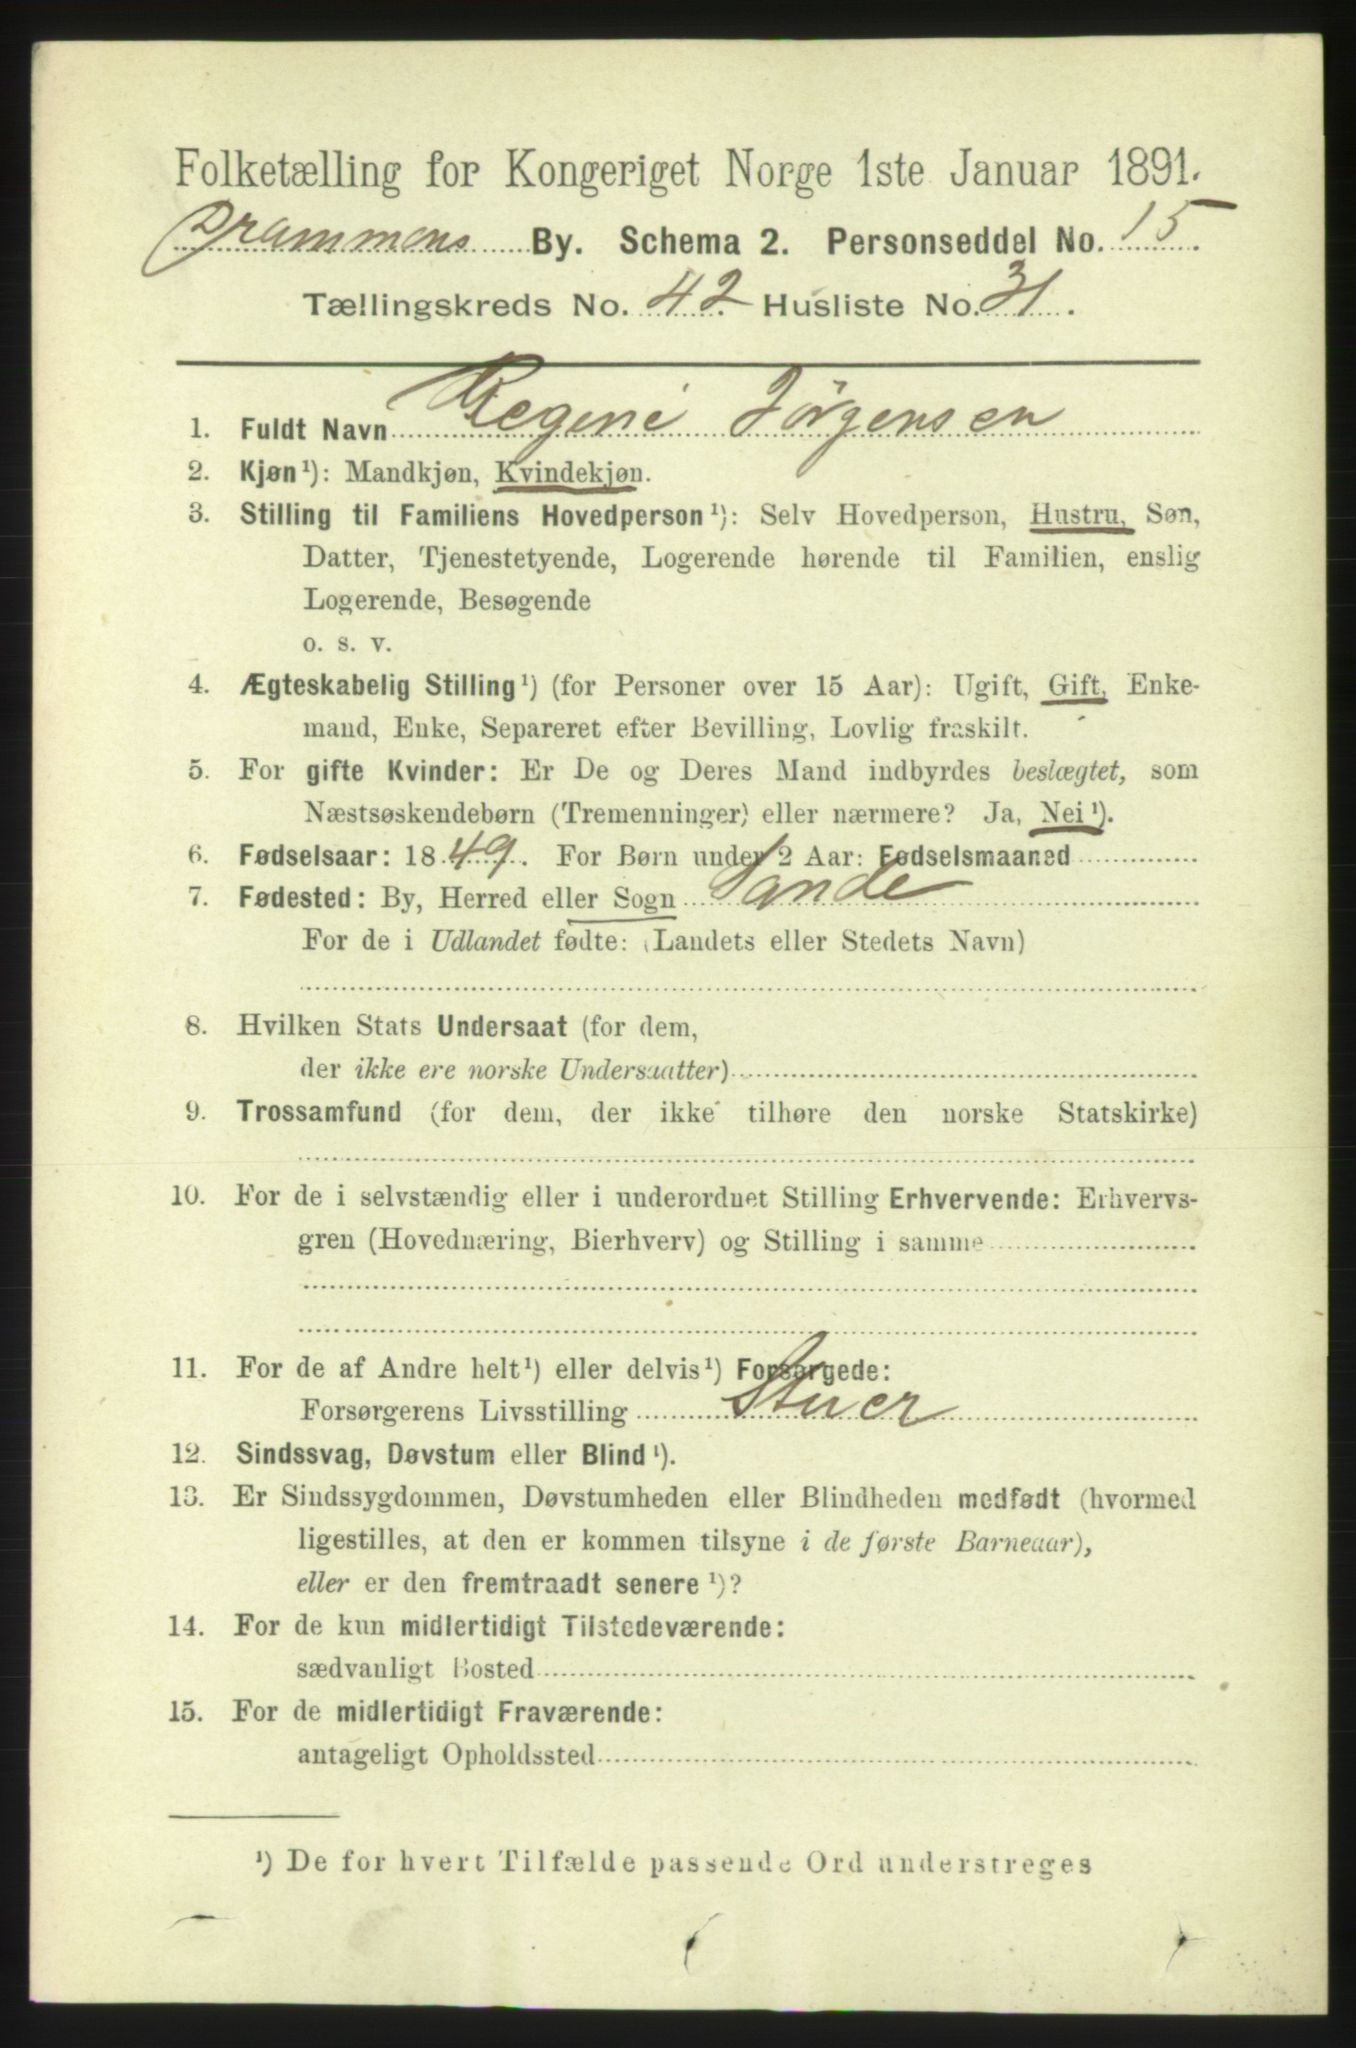 Folketælling for Kongeriget Norge 1ste Januar 1891.
Drammens By. Schema 2. Personseddel No. 15.
Tællingskreds No. 42 Husliste No. 31.
1. Fuldt Navn Regine Jørgensen
2. Kjøn¹): Mandkjøn, Kvindekjøn.
3. Stilling til Familiens Hovedperson¹): Selv Hovedperson, Hustru, Søn,
Datter, Tjenestetyende, Logerende hørende til Familien, enslig
Logerende, Besøgende
o. s. v.
4. Ægteskabelig Stilling¹) (for Personer over 15 Aar): Ugift, Gift, Enke-
mand, Enke, Separeret efter Bevilling, Lovlig fraskilt.
5. For gifte Kvinder: Er De og Deres Mand indbyrdes beslægtet, som
Næstsøskendebørn (Tremenninger) eller nærmere? Ja, Nei¹).
6. Fødselsaar: 1849. For Børn under 2 Aar: Fødselsmaaned
7. Fødested: By, Herred eller Sogn Sande
For de i Udlandet fødte: (Landets eller Stedets Navn)
8. Hvilken Stats Undersaat (for dem,
der ikke ere norske Undersaatter)
9. Trossamfund (for dem, der ikke tilhøre den norske Statskirke)
10. For de i selvstændig eller i underordnet Stilling Erhvervende: Erhvervs-
gren (Hovednæring, Bierhverv) og Stilling i samme
11. For de af Andre helt¹) eller delvis¹) Forsørgede:
Forsørgerens Livsstilling Stuer
12. Sindssvag, Døvstum eller Blind¹).
13. Er Sindssygdommen, Døvstumheden eller Blindheden medfødt (hvormed
ligestilles, at den er kommen tilsyne i de første Barneaar),
eller er den fremtraadt senere¹)?
14. For de kun midlertidigt Tilstedeværende:
sædvanligt Bosted
15. For de midlertidigt Fraværende:
antageligt Opholdssted
¹) De for hvert Tilfælde passende Ord understreges